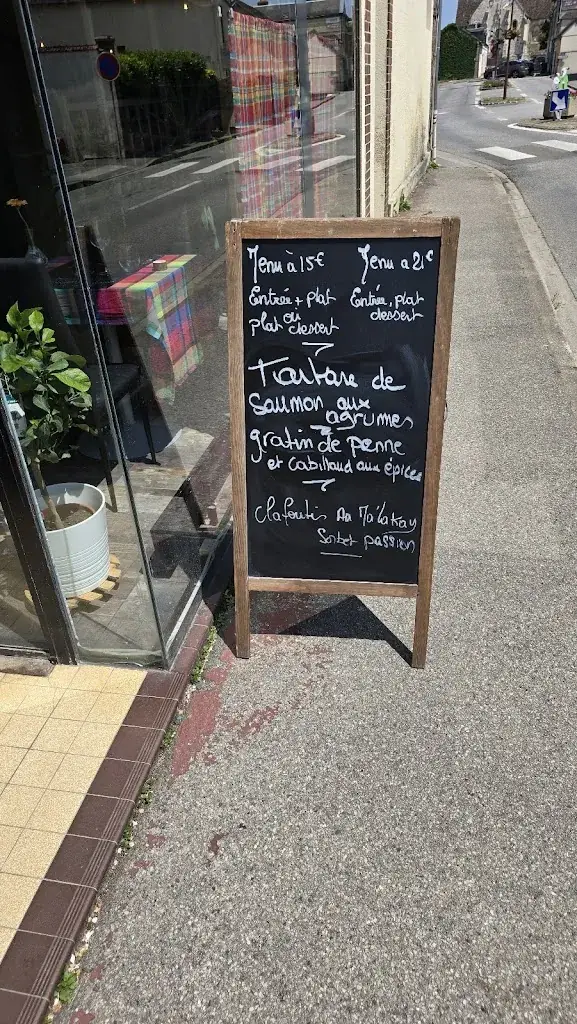 Menu à 15€
Menu a 21€
Entrée + plat
ou
plat dessert
Entrée, plat
dessert
Tartare de
Saumon aux
agrumes
gratin de penne
et Cabillaud aux épices
Clafoutis
Sorbet passion